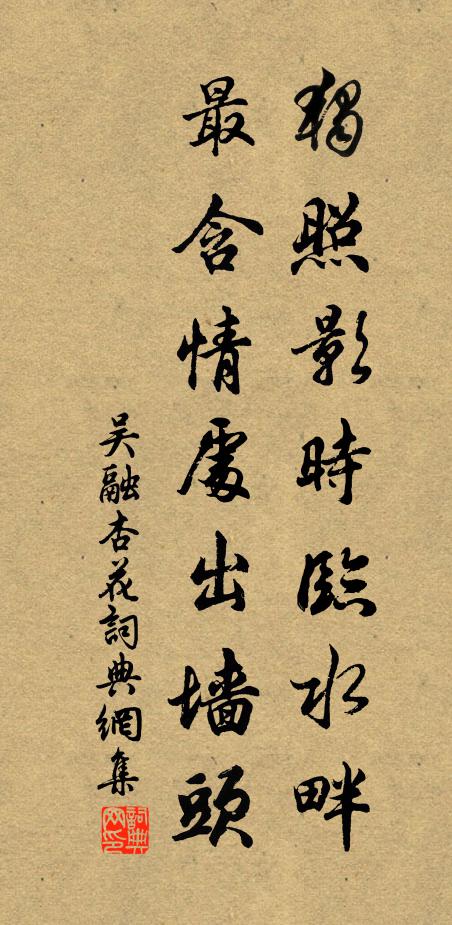 獨照影時臨水畔
最含情處出墻頭
吴融杏花詞典網集
詞典網印